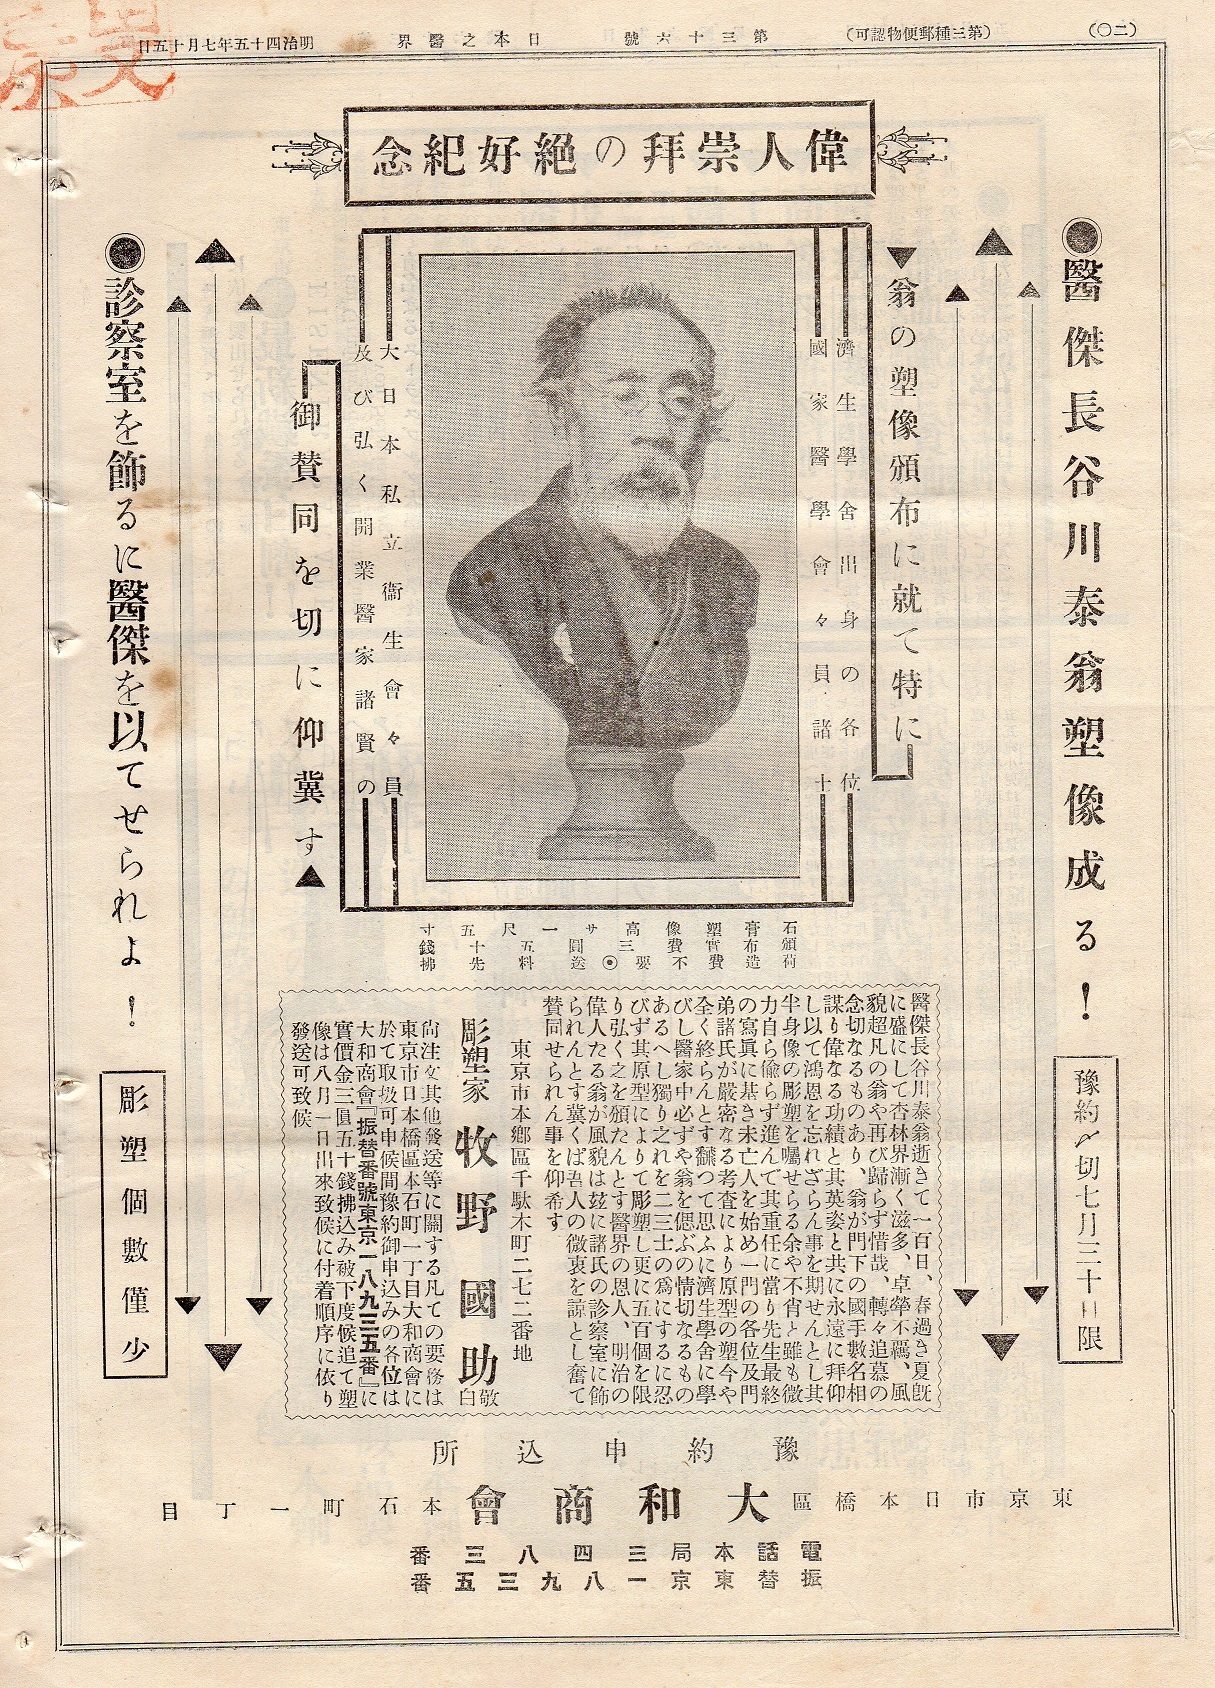 (二〇)
(第三種郵便物認可)
第三十六號
日本之醫界
明治四十五年七月十五日
偉人崇拜の絶好紀念
●醫傑長谷川泰翁塑像成る!
豫約〆切七月三十日限
▼翁の塑像頒布に就て特に
濟生學舍出身の各位
國家醫學會々員諸士
大日本私立衞生會々員
及び弘く開業醫家諸賢の
御賛同を切に仰冀す▲
●診察室を飾るに醫傑を以てせられよ!
彫塑個數僅少
石膏塑像高サ一尺五寸
頒布實費三圓五十錢
荷造費不要◉送料先拂
醫傑長谷川泰翁逝きて一百日、春過き夏旣
に盛にして杏林界漸く滋多、卓犖不羈、風
貌超凡の翁や再び歸らず惜哉、轉々追慕の
念切なるものあり、翁が門下の國手數名相
謀り偉なる功績と其英姿と共に永遠に拜仰
し以て鴻恩を忘れざらん事を期せんとし其
半身像の彫塑を囑せらる余や不肖と雖も微
力自ら偸らず進んで其重任に當り先生最終
の寫眞に基き未亡人を始め一門の各位及門
弟諸氏が嚴密なる考査により原型の塑今や
全く終らんとす飜つて思ふに濟生學舍に學
びし醫家中必ずや翁を偲ぶの情切なるもの
あるへし獨り之れを二三士の爲にするに忍
びず其原型によりて彫塑し更に五百個を限
り弘く之を頒たんとす醫界の恩人、明治の
偉人たる翁が風貌は玆に諸氏の診察室に飾
られんとす冀くば吾人の微衷を諒とし奮て
賛同せられん事を仰希す
東京市本鄕區千駄木町二七二番地
彫塑家 牧野國助 敬白
尙注文其他發送等に關する凡ての要務は
東京市日本橋區本石町一丁目大和商會に
於て取扱可申候間豫約御申込みの各位は
大和商會『振替番號東京一八九三五番』に
實價金三圓五十錢拂込み被下度候追て塑
像は八月一日出來致候に付着順序に依り
發送可致候
豫約申込所
東京市日本橋區本石町一丁目
大和商會
電話本局三四八三番
振替東京一八九三五番